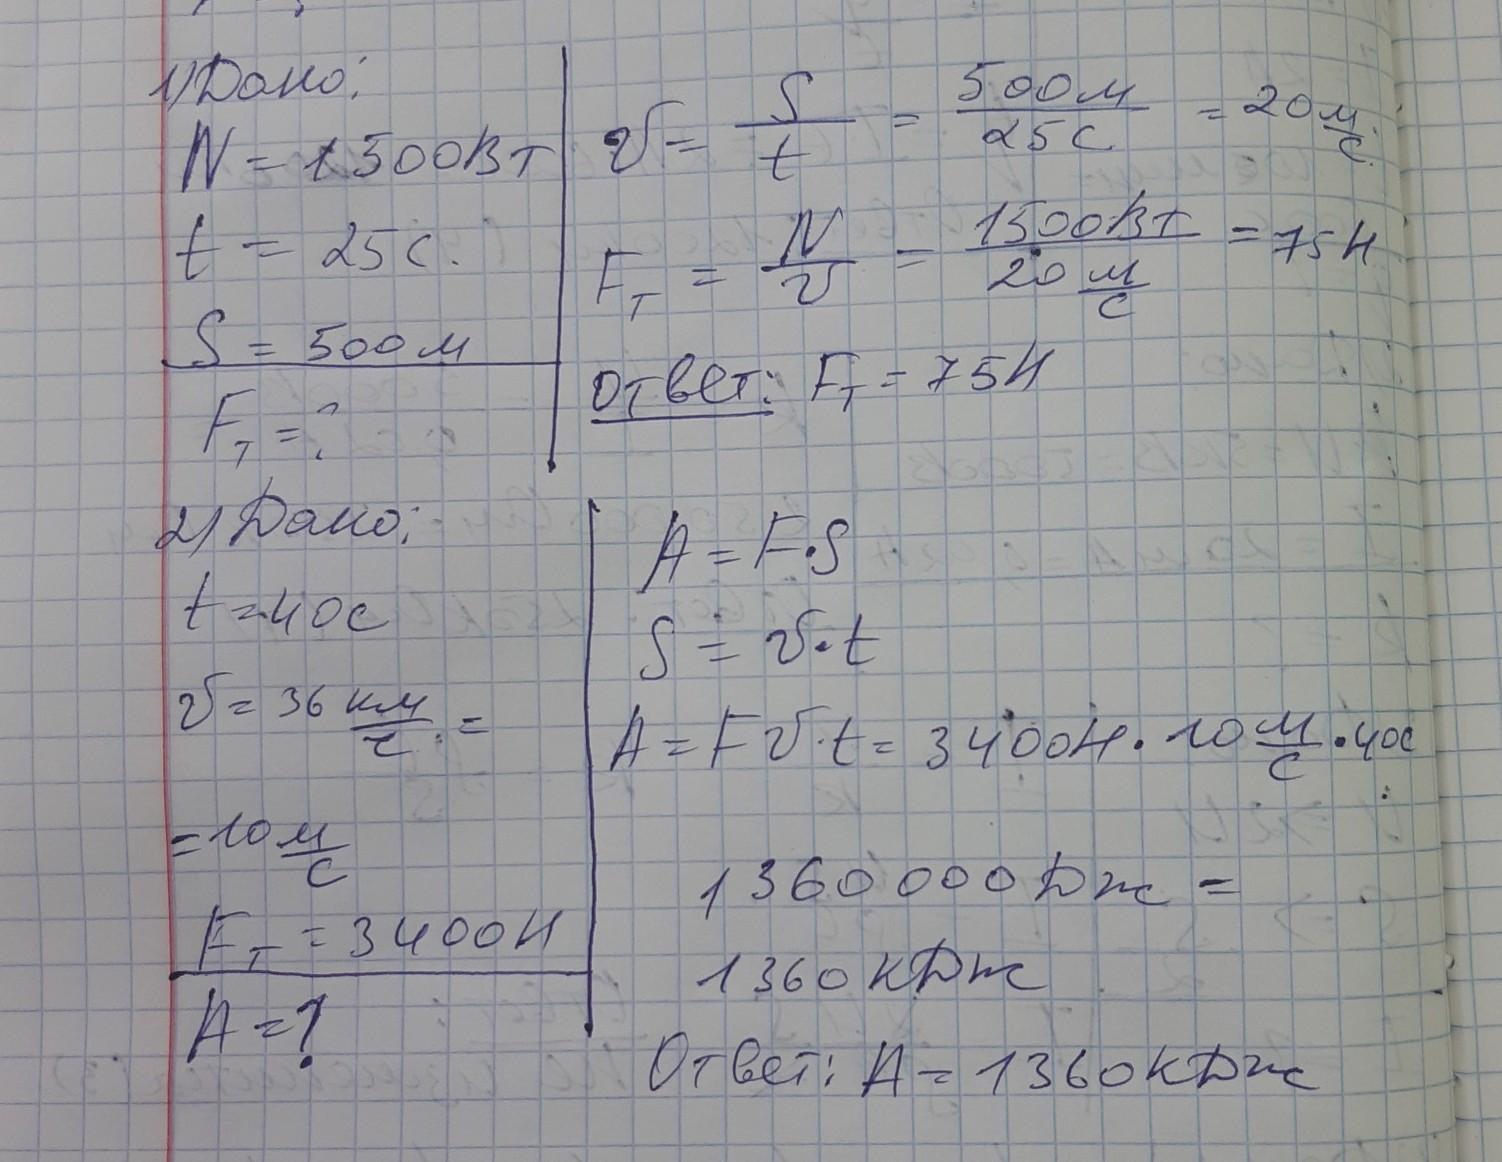 1) Дано:
N = 1500Вт
t = 25с.
S = 500м
Fт = ?
v = S/t = 500м/25с = 20 м/с.
Fт = N/v = 1500Вт/20 м/с = 75Н
Ответ: Fт = 75Н
2) Дано:
t = 40с
v = 36 км/ч =
= 10 м/с
Fт = 3400Н
A = ?
A = F·S
S = v·t
A = F v·t = 3400Н · 10 м/с · 40с
1360000Дж =
1360кДж
Ответ: A = 1360кДж